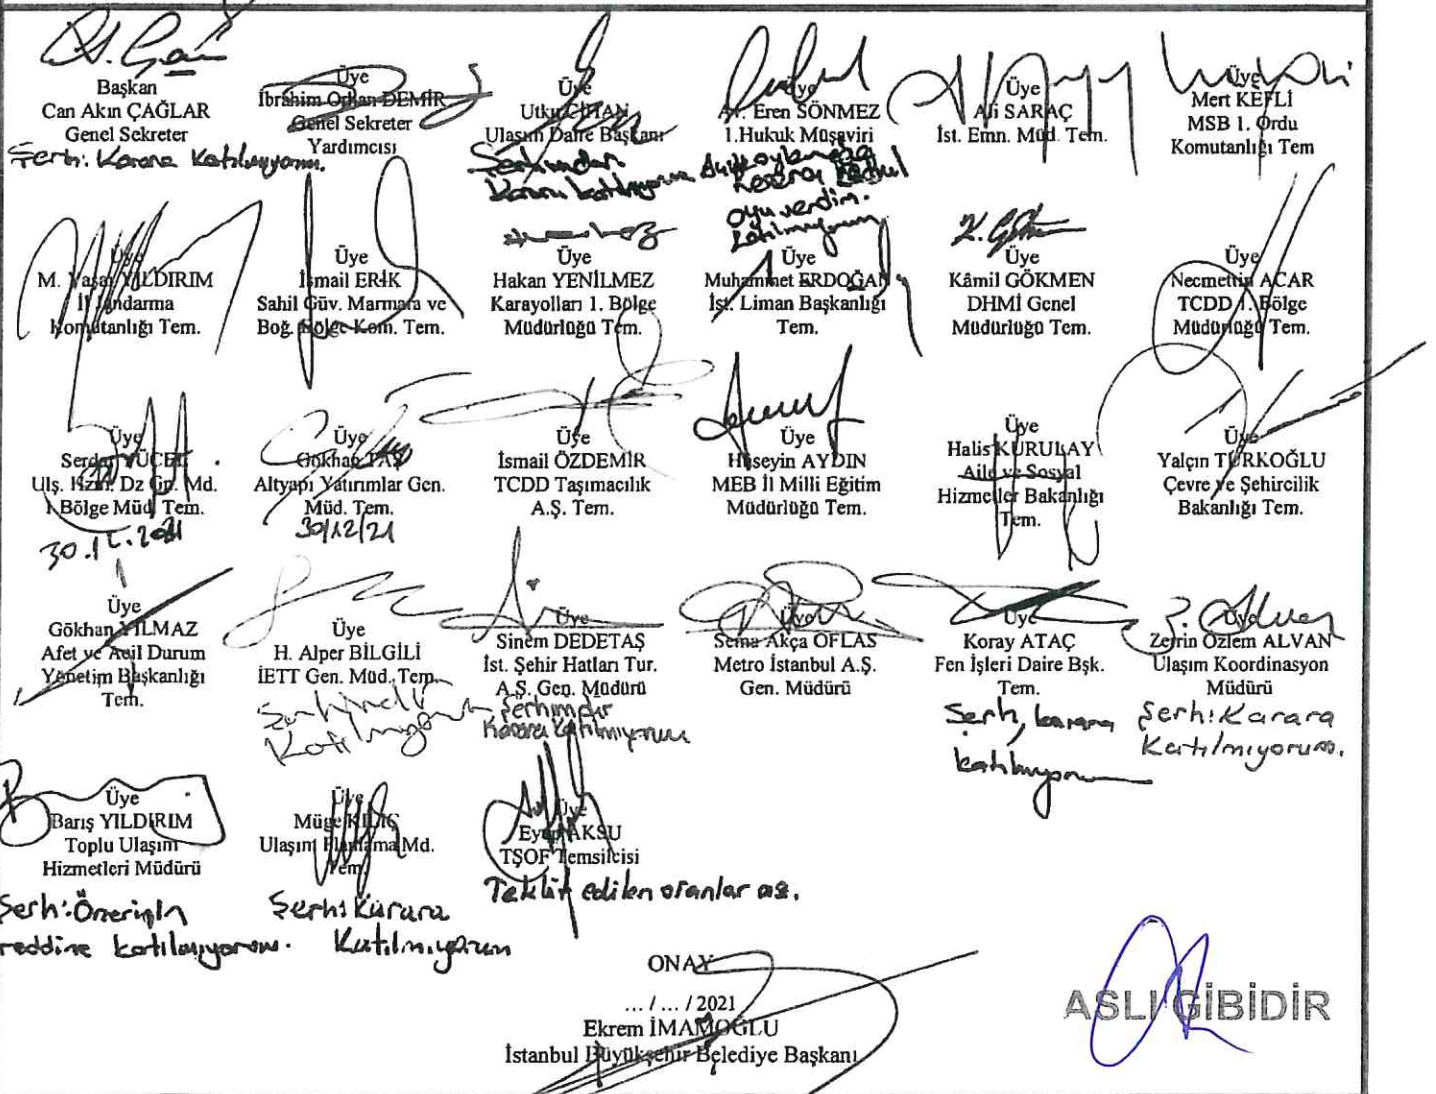 Başkan
Can Akın ÇAĞLAR
Genel Sekreter
Şerh: Karara Katılmıyorum.
Üye
İbrahim Orhan DEMİR
Genel Sekreter
Yardımcısı
Üye
Utku CİHAN
Ulaşım Daire Başkanı
Karara katılmıyorum
Üye
Av. Eren SÖNMEZ
1.Hukuk Müşaviri
oyu verdim.
katılmıyorum
Üye
Ali SARAÇ
İst. Emn. Müd. Tem.
Üye
Mert KEFLİ
MSB 1. Ordu
Komutanlığı Tem
Üye
M. Yaşar YILDIRIM
İl Jandarma
Komutanlığı Tem.
Üye
İsmail ERİK
Sahil Güv. Marmara ve
Boğ. Bölge Kom. Tem.
Üye
Hakan YENİLMEZ
Karayolları 1. Bölge
Müdürlüğü Tem.
Üye
Muhammet ERDOĞAN
İst. Liman Başkanlığı
Tem.
K. Gökmen
Üye
Kâmil GÖKMEN
DHMİ Genel
Müdürlüğü Tem.
Üye
Necmettin ACAR
TCDD 1. Bölge
Müdürlüğü Tem.
Üye
Serdar YÜCEL
Ulş. Hzm. Dz Gn. Md.
1 Bölge Müd. Tem.
30.12.2021
Üye
Gökhan TAŞ
Altyapı Yatırımlar Gen.
Müd. Tem.
30/12/21
Üye
İsmail ÖZDEMİR
TCDD Taşımacılık
A.Ş. Tem.
Üye
Hüseyin AYDIN
MEB İl Milli Eğitim
Müdürlüğü Tem.
Üye
Halis KURULAY
Aile ve Sosyal
Hizmetler Bakanlığı
Tem.
Üye
Yalçın TÜRKOĞLU
Çevre ve Şehircilik
Bakanlığı Tem.
Üye
Gökhan YILMAZ
Afet ve Acil Durum
Yönetim Başkanlığı
Tem.
Üye
H. Alper BİLGİLİ
İETT Gen. Müd. Tem.
Katılmıyorum
Üye
Sinem DEDETAŞ
İst. Şehir Hatları Tur.
A.Ş. Gen. Müdürü
Şerhimdir
Karara Katılmıyorum
Üye
Sema Akça OFLAS
Metro İstanbul A.Ş.
Gen. Müdürü
Üye
Koray ATAÇ
Fen İşleri Daire Bşk.
Tem.
Şerh, karara
katılmıyorum
Üye
Zerrin Özlem ALVAN
Ulaşım Koordinasyon
Müdürü
Şerh: Karara
Katılmıyorum.
Üye
Barış YILDIRIM
Toplu Ulaşım
Hizmetleri Müdürü
Şerh: Önerinin
reddine katılmıyorum.
Üye
Müge KILIÇ
Ulaşım Planlama Md.
Tem.
Şerh: Karara
Katılmıyorum
Üye
Eyüp AKSU
TŞOF Temsilcisi
Teklif edilen oranlar az.
ONAY
... / ... / 2021
Ekrem İMAMOĞLU
İstanbul Büyükşehir Belediye Başkanı
ASLI GİBİDİR